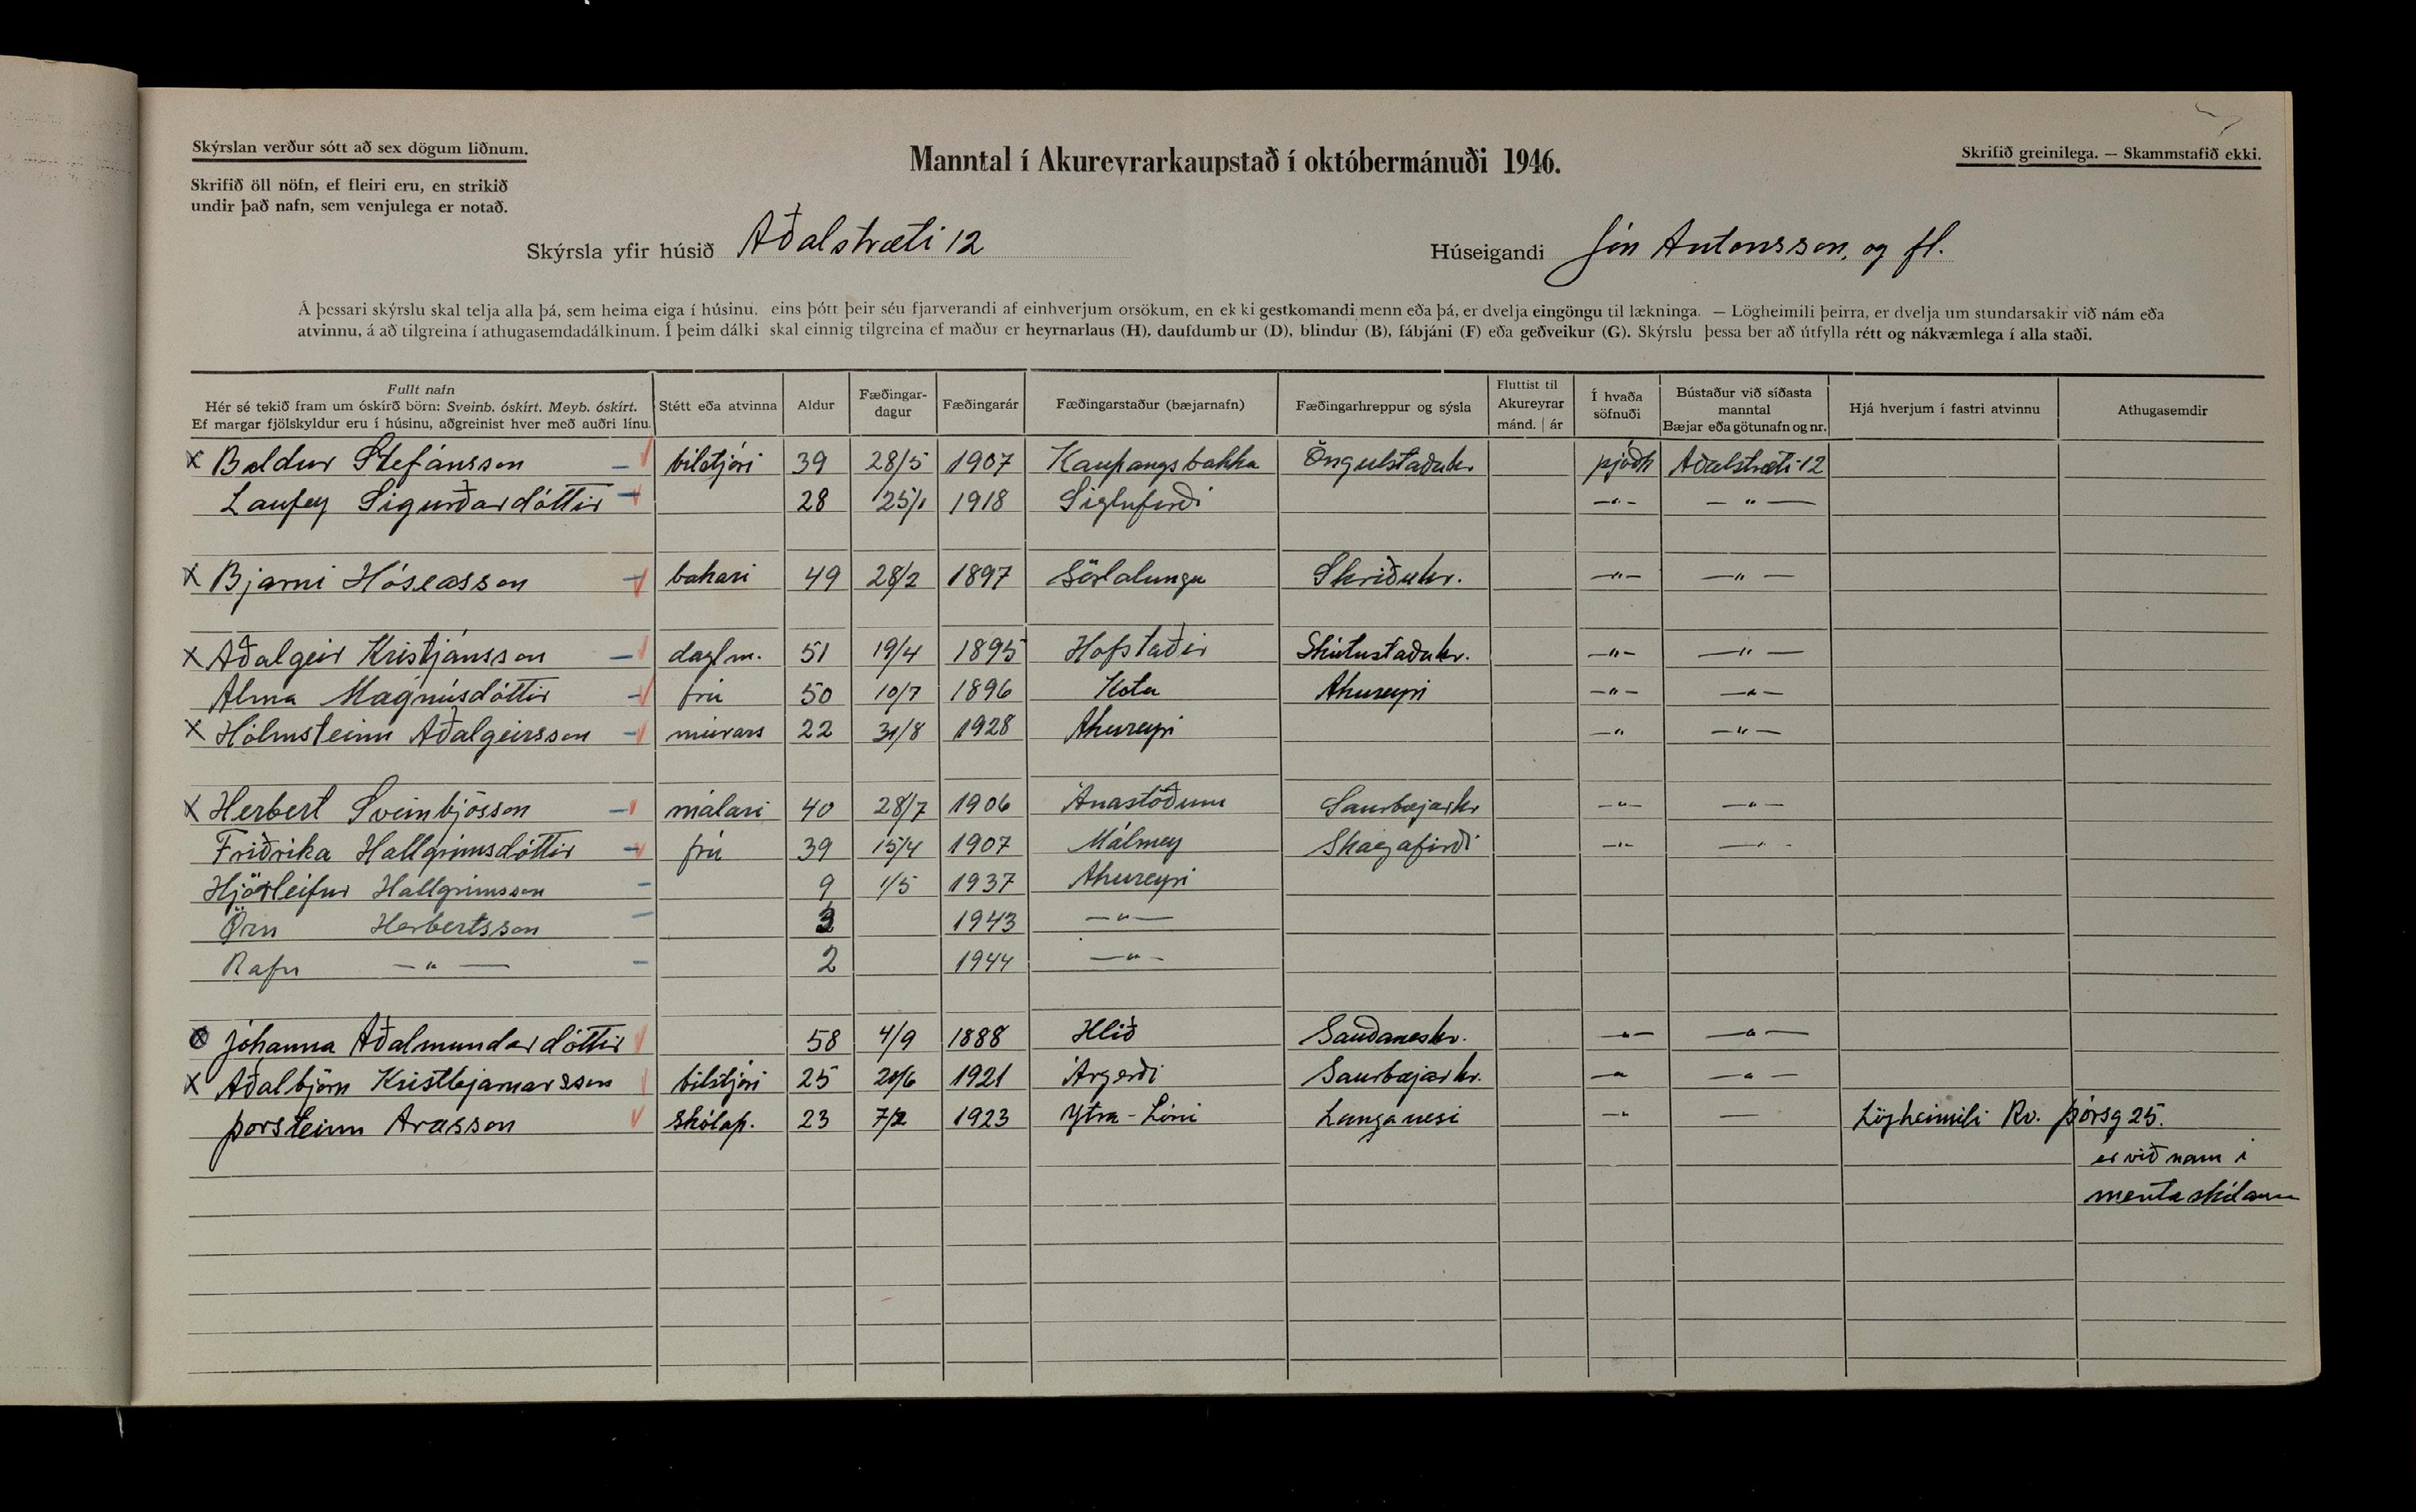 Skýrslan verður sótt að sex dögum liðnum.
Manntal í Akureyrarkaupstað í októbermánuði 1946.
Skrifið greinilega. — Skammstafið ekki.
Skrifið öll nöfn, ef fleiri eru, en strikið
undir það nafn, sem venjulega er notað.
Skýrsla yfir húsið Aðalstræti 12
Húseigandi Jón Antonsson, og fl.
Á þessari skýrslu skal telja alla þá, sem heima eiga í húsinu, eins þótt þeir séu fjarverandi af einhverjum orsökum, en ekki gestkomandi menn eða þá, er dvelja eingöngu til lækninga. — Lögheimili þeirra, er dvelja um stundarsakir við nám eða
atvinnu, á að tilgreina í athugasemdadálkinum. Í þeim dálki skal einnig tilgreina ef maður er heyrnarlaus (H), daufdumbur (D), blindur (B), fábjáni (F) eða geðveikur (G). Skýrslu þessa ber að útfylla rétt og nákvæmlega í alla staði.
Fullt nafn
Hér sé tekið fram um óskírð börn: Sveinb. óskírt. Meyb. óskírt.
Ef margar fjölskyldur eru í húsinu, aðgreinist hver með auðri línu.
Stétt eða atvinna
Aldur
Fæðingar-
dagur
Fæðingarár
Fæðingarstaður (bæjarnafn)
Fæðingarhreppur og sýsla
Fluttist til
Akureyrar
mánd. | ár
Í hvaða
söfnuði
Bústaður við síðasta
manntal
Bæjar eða götunafn og nr.
Hjá hverjum í fastri atvinnu
Athugasemdir
x Baldur Stefánsson bílstjóri 39 28/5 1907 Kaupangsbakka Öngulstaðahr. þjóðk Aðalstræti 12
Laufey Sigurðardóttir 28 25/1 1918 Siglufirði —"— —"—
x Bjarni Hóseasson bakari 49 28/2 1897 Sörlatunga Skriðuhr. —"— —"—
x Aðalgeir Kristjánsson daglm. 51 19/4 1895 Hofstaðir Skútustaðahr. —"— —"—
Alma Magnúsdóttir frú 50 10/7 1896 Kota Akureyri —"— —"—
x Hólmsteinn Aðalgeirsson múrars 22 31/8 1928 Akureyri —" —"—
x Herbert Sveinbjösson málari 40 28/7 1906 Ánastöðum Saurbæjarhr —"— —"—
Friðrika Hallgrímsdóttir frú 39 15/4 1907 Málmey Skagafirði —"— —"—
Hjörleifur Hallgrímsson 9 1/5 1937 Akureyri
Örn Herbertsson 3 1943 —"—
Rafn —"— 2 1944 —"—
x Jóhanna Aðalmundardóttir 58 4/9 1888 Hlíð Sauðaneshr. —"— —"—
x Aðalbjörn Kristbjarnarsson bílstjóri 25 20/6 1921 Árgerði Saurbæjarhr. —" —"—
Þorsteinn Arasson skólap. 23 7/2 1923 Ytra-Lóni Langanesi —" — Lögheimili Rv. Þórsg 25.
er við nam í
mentaskólanum